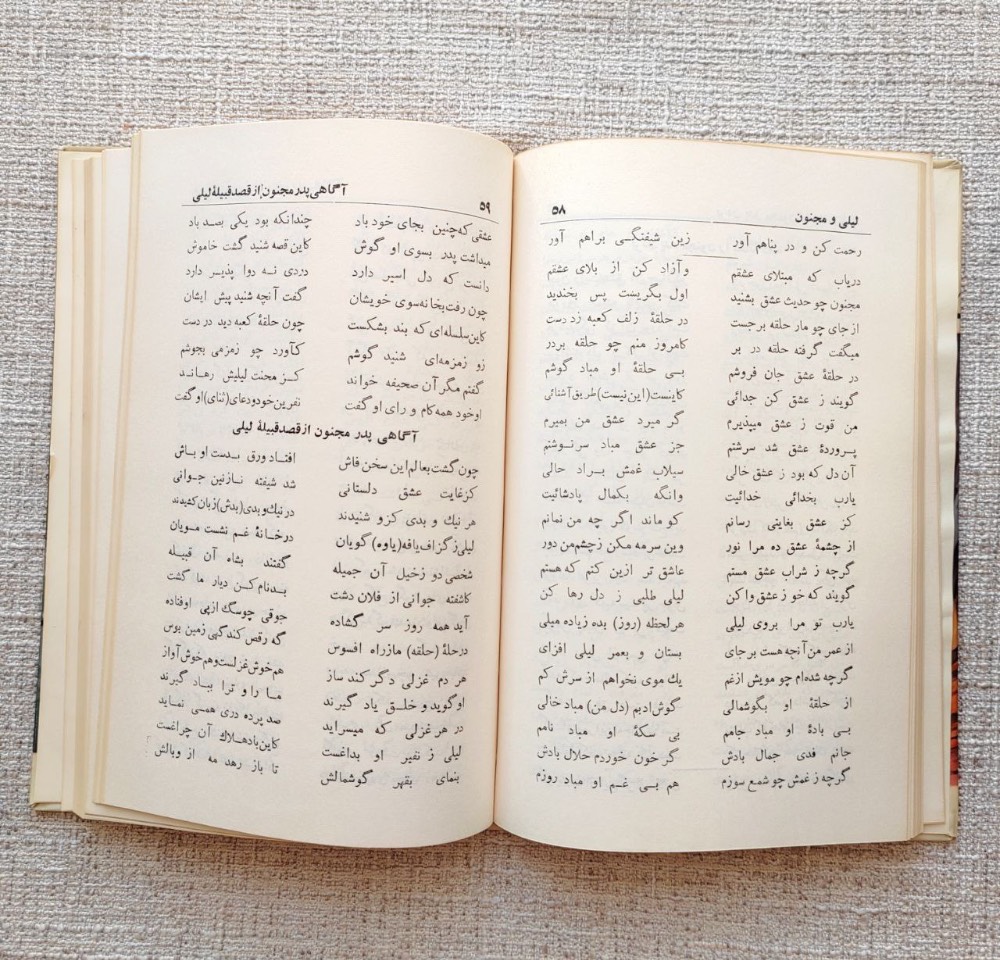 ۵۸ لیلی و مجنون
رحمت کن و در پناهم آور زین شیفتگی براهم آور
دریاب که مبتلای عشقم و آزاد کن از بلای عشقم
مجنون چو حدیث عشق بشنید اول بگریست پس بخندید
از جای چو مار حلقه برجست در حلقهٔ زلف کعبه زد دست
میگفت گرفته حلقه در بر کامروز منم چو حلقه بر در
در حلقهٔ عشق جان فروشم بی حلقهٔ او مباد گوشم
گویند ز عشق کن جدائی کاینست (این نیست) طریق آشنائی
من قوت ز عشق میپذیرم گر میرد عشق من بمیرم
پروردهٔ عشق شد سرشتم جز عشق مباد سرنوشتم
آن دل که بود ز عشق خالی سیلاب غمش براد حالی
یارب بخدائی خدائیت وانگه بکمال پادشائیت
کز عشق بغایتی رسانم کو ماند اگر چه من نمانم
از چشمهٔ عشق ده مرا نور وین سرمه مکن زچشم من دور
گرچه ز شراب عشق مستم عاشق تر ازین کنم که هستم
گویند که خو ز عشق وا کن لیلی طلبی ز دل رها کن
یارب تو مرا بروی لیلی هر لحظه (روز) بده زیاده میلی
از عمر من آنچه هست برجای بستان و بعمر لیلی افزای
گرچه شده‌ام چو مویش از غم یك موی نخواهم از سرش کم
از حلقهٔ او بگوشمالی گوش ادبم (دل من) مباد خالی
بی بادهٔ او مباد جامم بی سکهٔ او مباد نامم
جانم فدی جمال بادش گر خون خوردم حلال بادش
گرچه ز غمش چو شمع سوزم هم بی غم او مباد روزم
۵۹ آگاهی پدر مجنون از قصد قبیلهٔ لیلی
عشقی که چنین بجای خود باد چندانکه بود یکی بصد باد
میداشت پدر بسوی او گوش کاین قصه شنید گشت خاموش
دانست که دل اسیر دارد دردی نه دوا پذیر دارد
چون رفت بخانه سوی خویشان گفت آنچه شنید پیش ایشان
کاین سلسله‌ای که بند بشکست چون حلقهٔ کعبه دید در دست
زو زمزمه‌ای شنید گوشم کآورد چو زمزمی بجوشم
گفتم مگر آن صحیفه خواند کز محنت لیلیش رهاند
او خود همه کام و رای او گفت نفرین خود و دعای (ثنای) او گفت
آگاهی پدر مجنون از قصد قبیلهٔ لیلی
چون گشت بعالم این سخن فاش افتاد ورق بدست اوباش
کز غایت عشق دلستانی شد شیفته نازنین جوانی
هر نیك و بدی کزو شنیدند در نیك و بدی (بدش) زبان کشیدند
لیلی ز گزاف یافه (یاوه) گویان در خانهٔ غم نشست مویان
شخصی دو زخیل آن جمیله گفتند بشاه آن قبیله
کاشفته جوانی از فلان دشت بدنام کن دیار ما گشت
آید همه روز سر گشاده جوقی چو سگ از پی اوفتاده
در حلهٔ (حلقه) ما ز راه افسوس گه رقص کند گهی زمین بوس
هر دم غزلی دگر کند ساز هم خوش غزلست و هم خوش آواز
او گوید و خلق یاد گیرند ما را و ترا بباد گیرند
در هر غزلی که میسراید صد پرده دری همی نماید
لیلی ز نفیر او بداغست کاین باد هلاك آن چراغست
بنمای بقهر گوشمالش تا باز رهد مه از وبالش